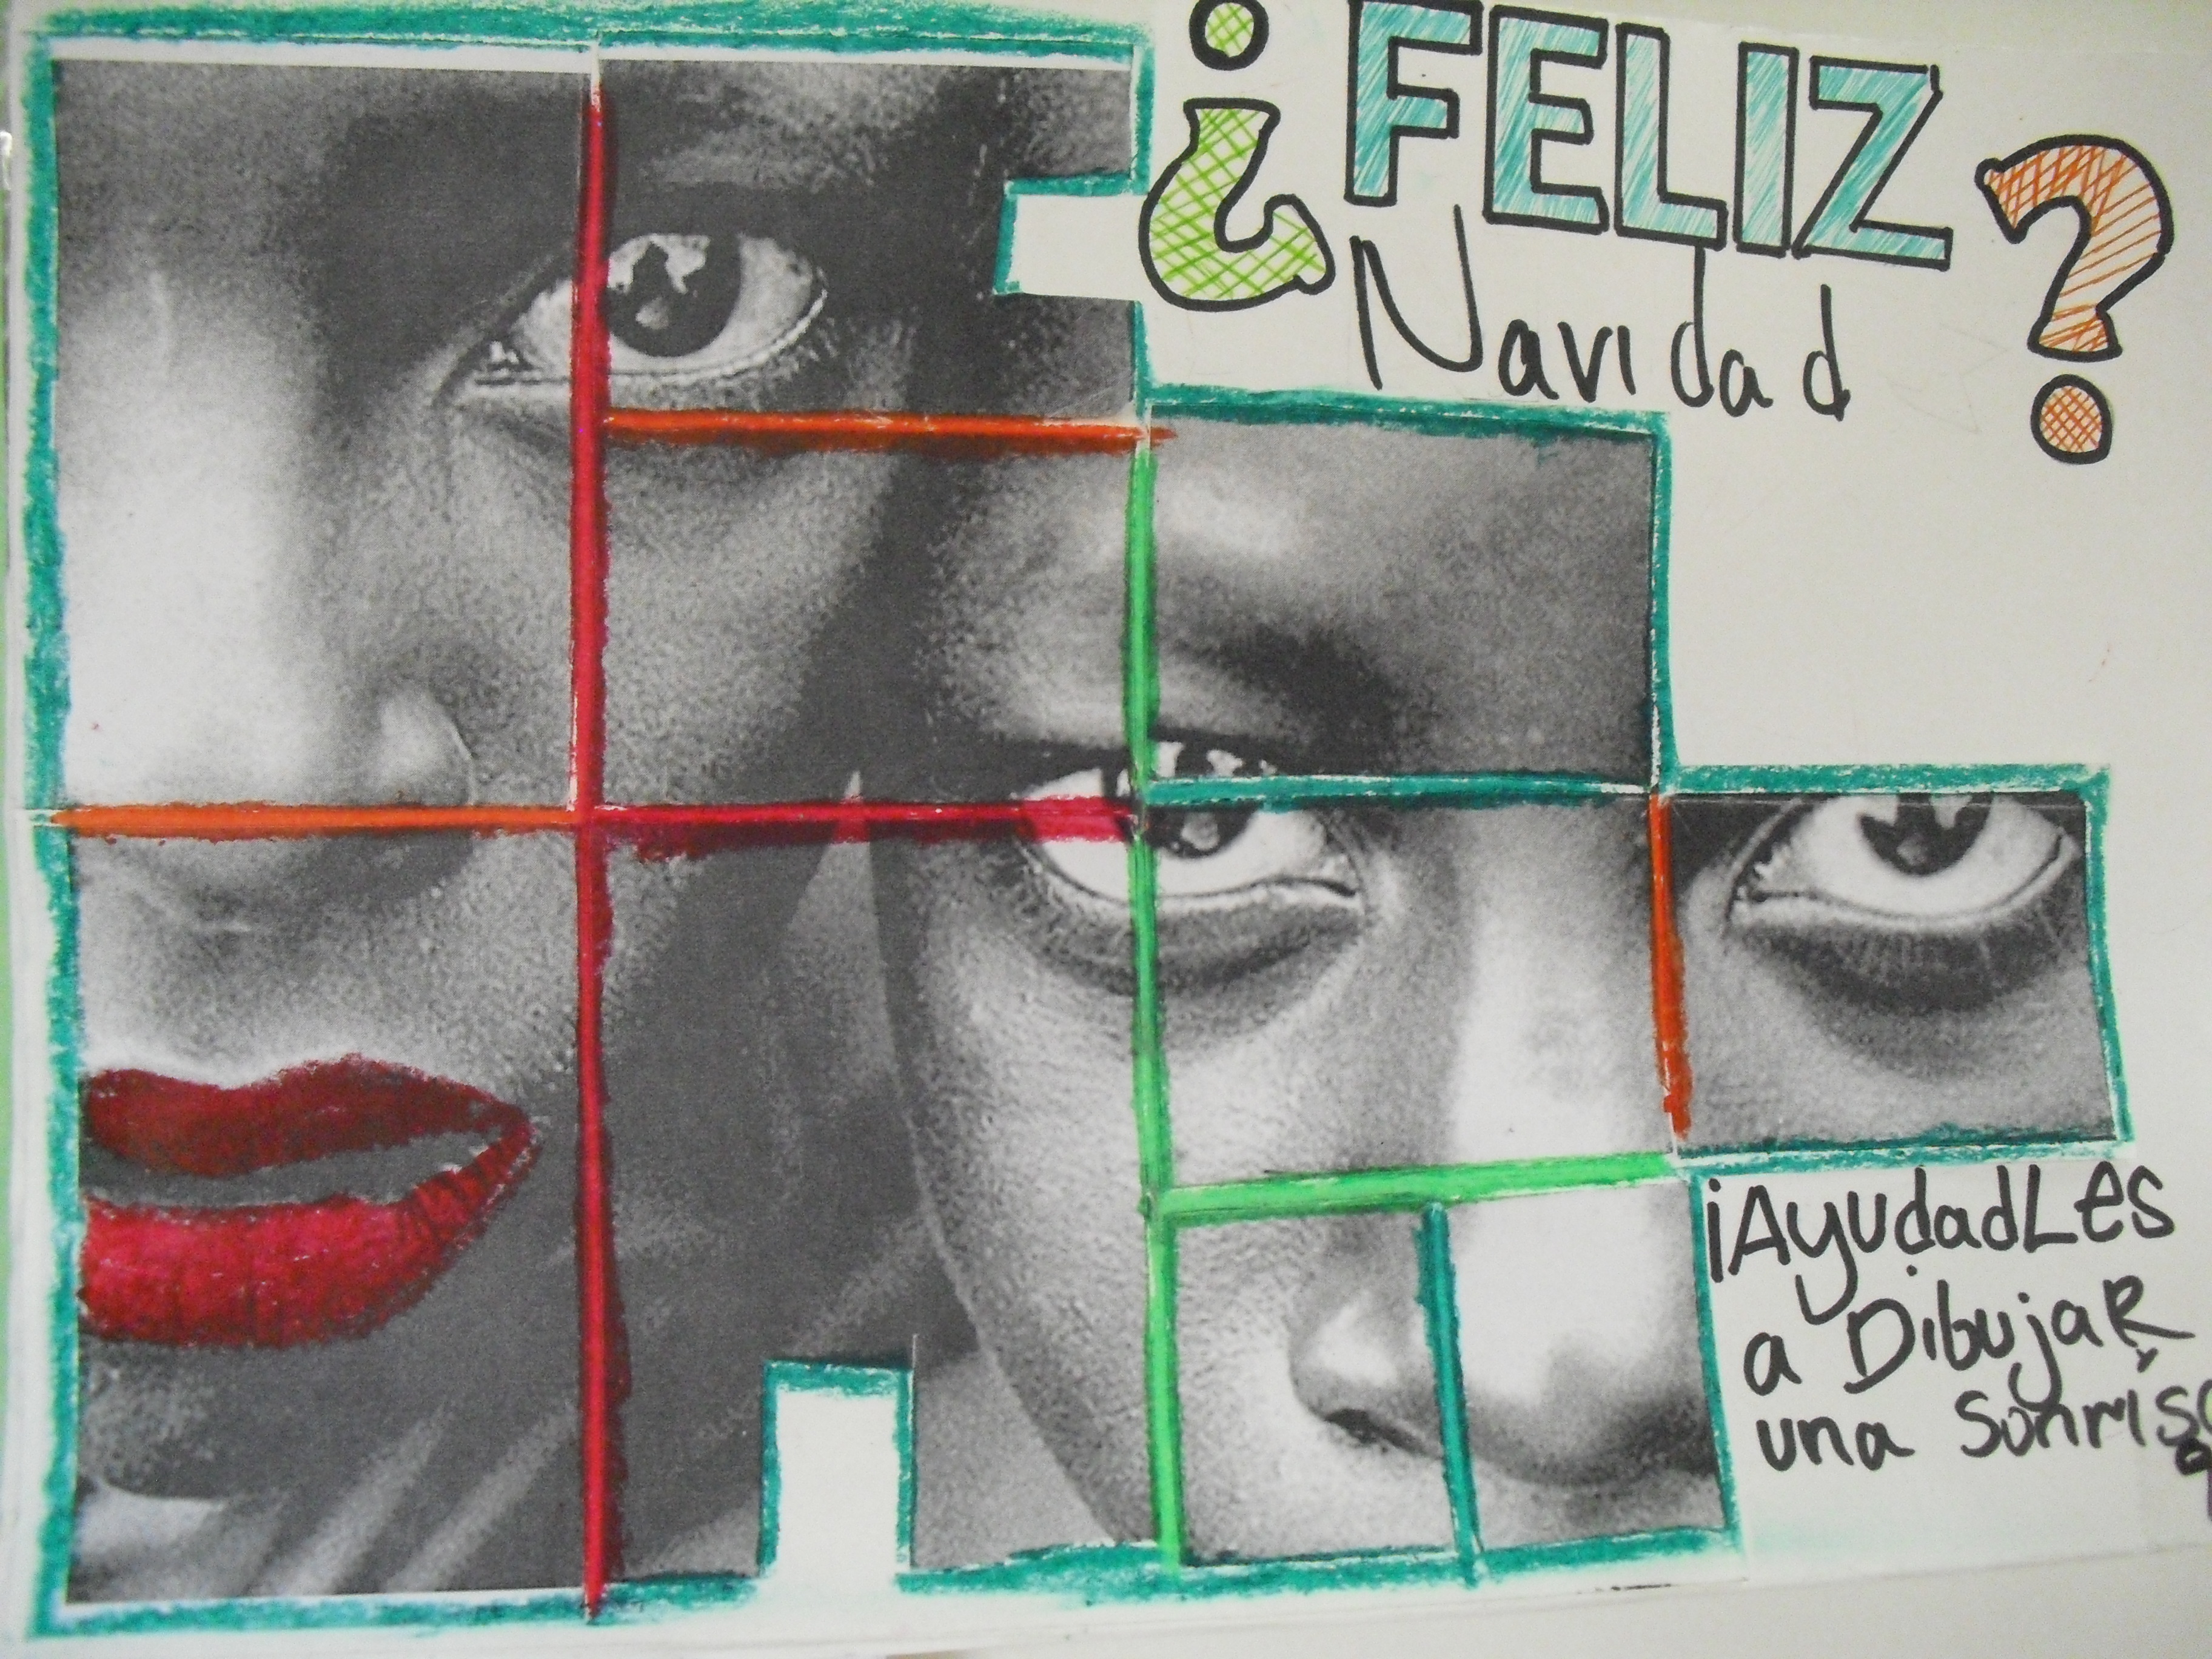 ¿FELIZ
Navidad?
¡AyudadLes
a DibujaR
una Sonrisa